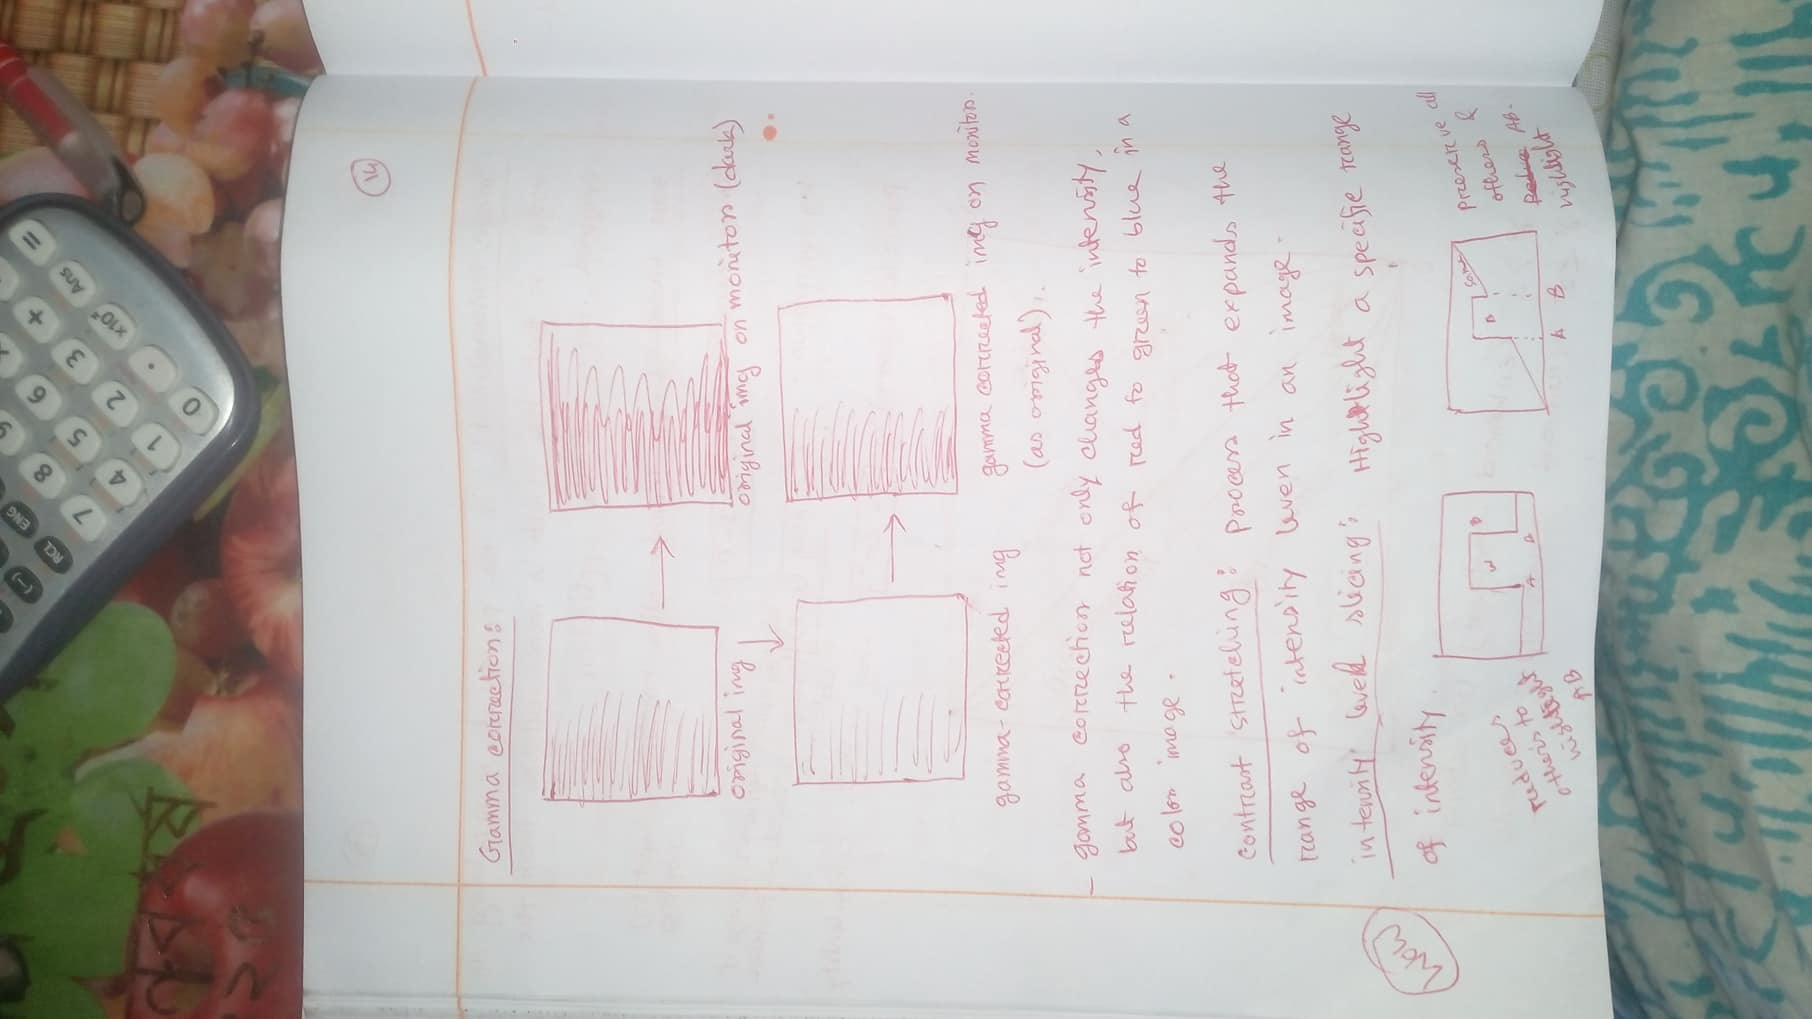 14
Gamma correction:
original img
original img on monitors (dark)
gamma-corrected img
gamma corrected img on monitors.
(as original).
- gamma correction not only changes the intensity,
but also the relation of red to green to blue in a
color image.
contrast stretching: process that expands the
range of intensity leven in an image.
intensity level slicing: Highlight a specific range
of intensity.
reduces
others to
highlight
AB
W
B
A
B
same
B
A
B
preserve all
others &
highlight
AB.
=
Ans
+
3
2
1
0
.
6
5
4
9
8
7
ENG
RCL
(-)